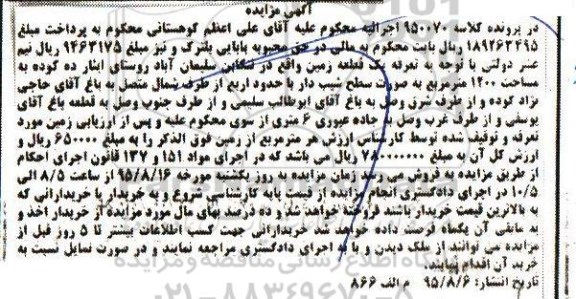 آگهی مزایده
در پرونده کلاسه ۹۵۰۰۷۰ اجرائیه محکوم علیه آقای علی اعظم کوهستانی محکوم به پرداخت مبلغ
۱۸۹۲۶۳۴۹۵ ریال بابت محکوم به مالی در حق محبوبه بابایی بلترک و نیز مبلغ ۹۴۶۳۱۷۵ ریال نیم
عشر دولتی با توجه به تعرفه یک قطعه زمین واقع در تنکابن سلیمان آباد روستای ایثار ده کوده به
مساحت ۱۲۰۰ مترمربع به صورت سطح شیب دار با حدود اربع از طرف شمال متصل به باغ آقای حاجی
نژاد کوده و از طرف شرق وصل به باغ آقای ابوطالب سلیمی و از طرف جنوب وصل به قطعه باغ آقای
یوسفی و از طرف غرب وصل به جاده عبوری ۶ متری از سوی محکوم علیه و پس از ارزیابی زمین مورد
تعرفه و توقیف شده توسط کارشناس ارزش هر مترمربع از زمین فوق الذکر را به مبلغ ۶۵۰۰۰۰ ریال و
ارزش کل آن به مبلغ ۷۸۰۰۰۰۰۰۰ ریال می باشد که در اجرای مواد ۱۵۱ و ۱۳۷ قانون اجرای احکام
از طریق مزایده به فروش می رسد. زمان مزایده به روز یکشنبه مورخه ۹۵/۸/۱۶ از ساعت ۸/۵ الی
۱۰/۵ در اجرای دادگستری انجام مزایده از قیمت پایه کارشناسی شروع و به خریدار یا خریدارانی که
به بالاترین قیمت خریدار باشند فروخته خواهد شد و ده درصد بهای مال مورد مزایده از خریدار اخذ و
به مابقی آن یکماه فرصت داده خواهد شد خریدارانی جهت کسب اطلاعات بیشتر تا ۵ روز قبل از
مزایده می توانند از ملک دیدن و یا به اجرای دادگستری مراجعه نمایند و در صورت تمایل نسبت به
خرید آن اقدام نمایند.
تاریخ انتشار: ۹۵/۸/۶ م الف ۸۶۶
پایگاه اطلاع رسانی مناقصه و مزایده
۰۲۱-۸۸۳۴۹۶۷۰-۵